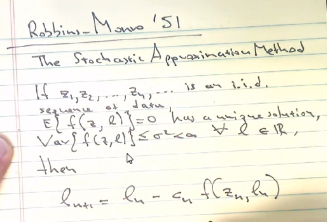 Robbins-Monro '51
The Stochastic Approximation Method
If z₁, z₂, ..., zₙ, ... is an i.i.d.
sequence of data,
E{f(z, l)} = 0 has a unique solution,
Var{f(z, l)} ≤ σ² < ∞ ∀ l ∈ ℝ,
then
lₙ₊₁ = lₙ - cₙ f(zₙ, lₙ)